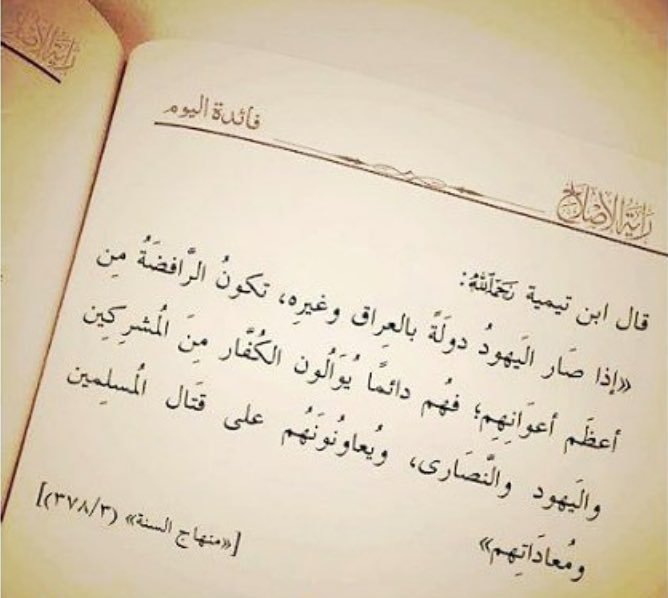 فائدة اليوم
راية الإصلاح
قال ابن تيمية رَحِمَهُ اللَّهُ:
«إذا صَار اليَهودُ دولَةً بالعِراق وغيرِه، تكونُ الرَّافضَةُ مِن
أعظَم أعوَانِهِم؛ فهُم دائمًا يُوَالُون الكُفَّار مِنَ المُشرِكِين
واليَهود والنَّصَارى، ويُعاونُونَهُم على قتَال المُسلِمين
ومُعادَاتِهم»
[«منهاج السنة» (٣٧٨/٣)]